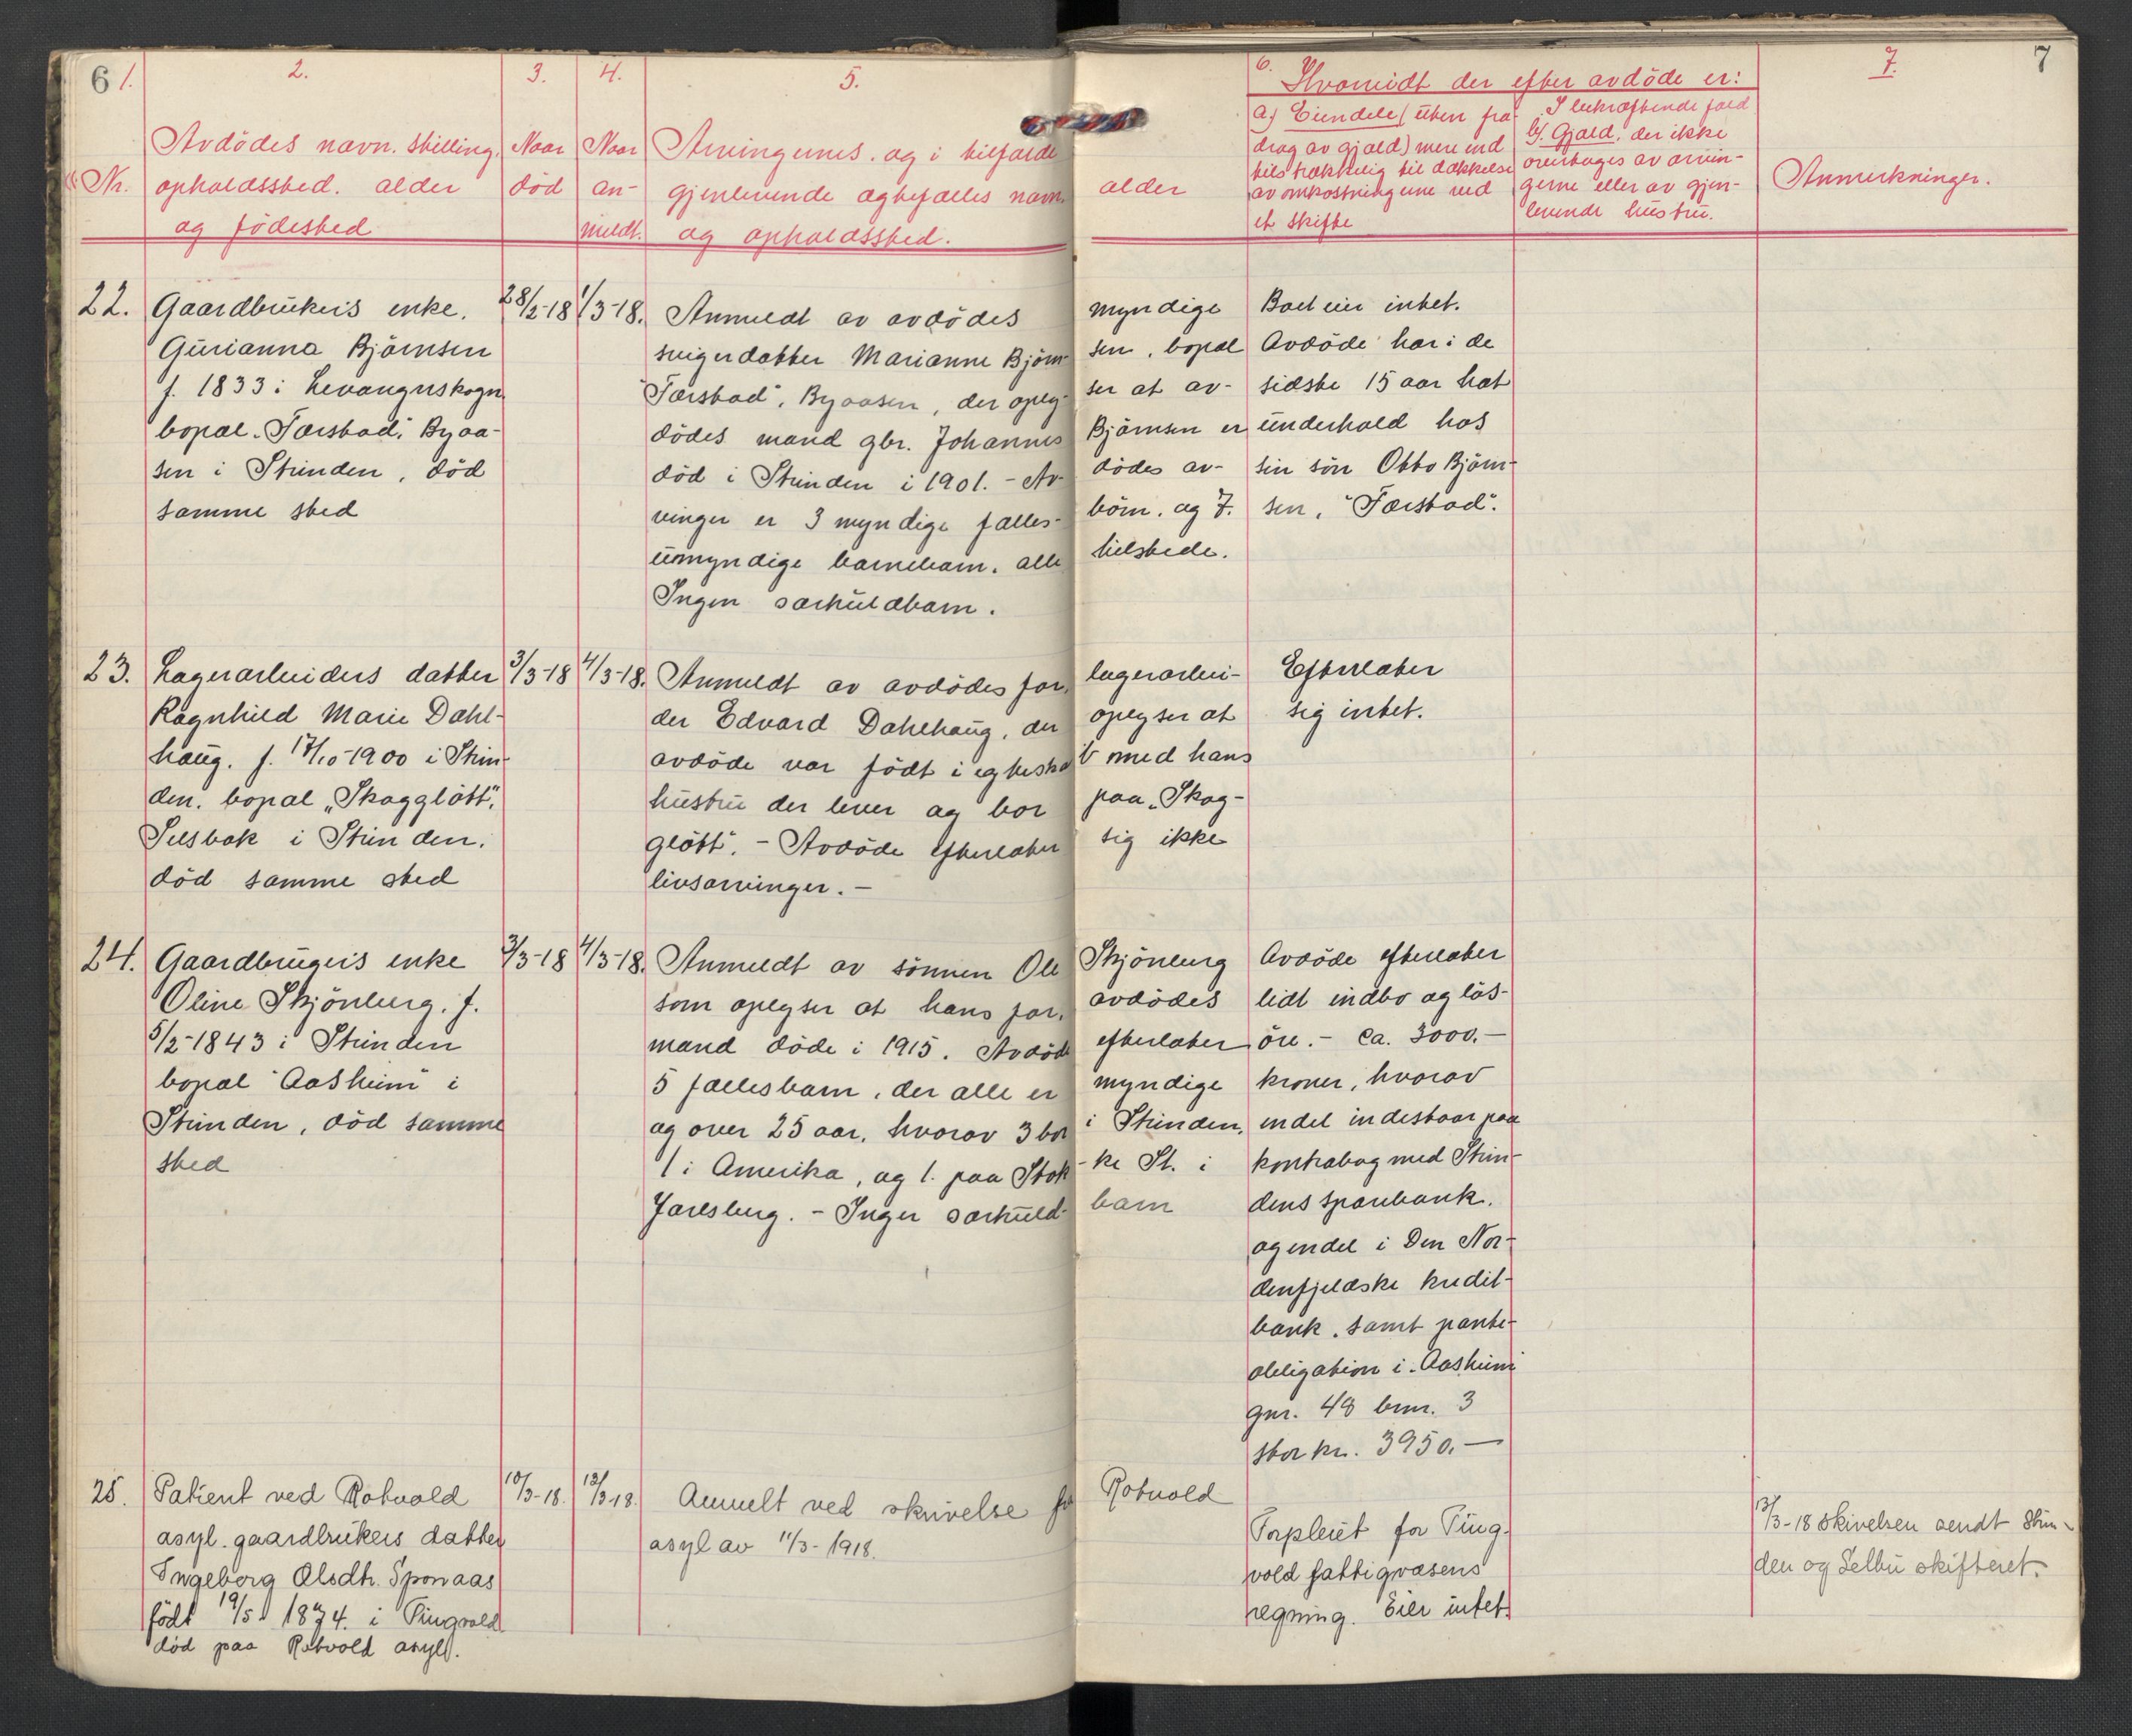 6 1. 2. 3. 4. 5.
Avdödes navn. stilling, Naar Naar Arvingernes. og i tilfælde
Nr. opholdssted. alder död an- gjenlevende ægtefælles navn.
og födested meldt. og opholdssted.
6. 7. 7
Hvorvidt der efter avdöde er:
a) Eiendele (uten fra-
drag av gjæld) mere end
tilstrækkelig til dækkelse
av omkostningerne ved
et skifte
I bekræftende fald
b). Gjæld, der ikke
overtages av arvin-
gerne eller av gjen-
levende hustru.
alder
Anmerkninger.
22. Gaardbrukers enke.
Gurianna Björnsen
f. 1833 i Levangerskogn
bopæl. Færstad, Byaa-
sen i Strinden, död
samme sted
28/2-18 1/3-18.
Anmeldt av avdödes myndige
svigerdatter Marianne Björn- sen, bopæl
"Færstad", Byaasen, der oply- ser at av-
dödes mand gbr. Johannes Björnsen er
död i Strinden i 1901. - Av- dödes ar-
vinger er 3 myndige fælles- börn. og 7.
umyndige barnebarn. alle tilstede.
Ingen særkuldbarn.
Boet eier intet.
Avdöde har i de
sidste 15 aar hat
underhold hos
sin sön Otto Björn-
sen, "Færstad".
23. Lagerarbeiders datter
Ragnhild Marie Dahl-
haug. f. 17/10-1900 i Strin-
den. bopæl „Skogglött",
Selsbak i Strinden.
död samme sted
3/3-18 4/3-18.
Anmeldt av avdödes far, lagerarbei-
der Edvard Dahlhaug, der oplyser at
avdöde var född i egteska b med hans
hustru der lever og bor paa „Skog-
glött". - Avdöde efterlater sig ikke
livsarvinger. -
Efterlater
sig intet.
24. Gaardbrugers enke
Oline Skjönberg. f.
5/2-1843 i Strinden
bopæl "Aasheim" i
Strinden, död samme
sted
3/3-18 4/3-18.
Anmeldt av sönnen Ole Skjönberg
som oplyser at hans far, avdödes
mand döde i 1915. Avdöde efterlater
5 fællesbarn, der alle er myndige
og over 25 aar, hvorav 3 bor i Strinden,
1 i Amerika, og 1. paa Stok- ke St. i
Jarlsberg. - Ingen særkuld- barn
Avdöde efterlater
lidt indbo og lös-
öre. - ca. 3000.-
kroner, hvorav
endel indestaar paa
kontrabog med Strin-
dens sparebank.
og endel i Den Nor-
denfjeldske kredit-
bank. samt pante-
obligation i. Aasheim
gnr. 48 bnr. 3
stor kr. 3950.-
25. Patient ved Rotvold
asyl. gaardbrukers datter
Ingeborg Olsdtr. Sponaas
född 19/5 1874. i Tingvold
död paa Rotvold asyl.
10/3-18. 12/3-18.
Anmelt ved skrivelse fra Rotvold
asyl av 11/3-1918.
Forpleiet for Ting-
vold fattigvæsens
regning. Eier intet
13/3-18 Skivelsen sendt Strin-
den og Selbu skifteret.